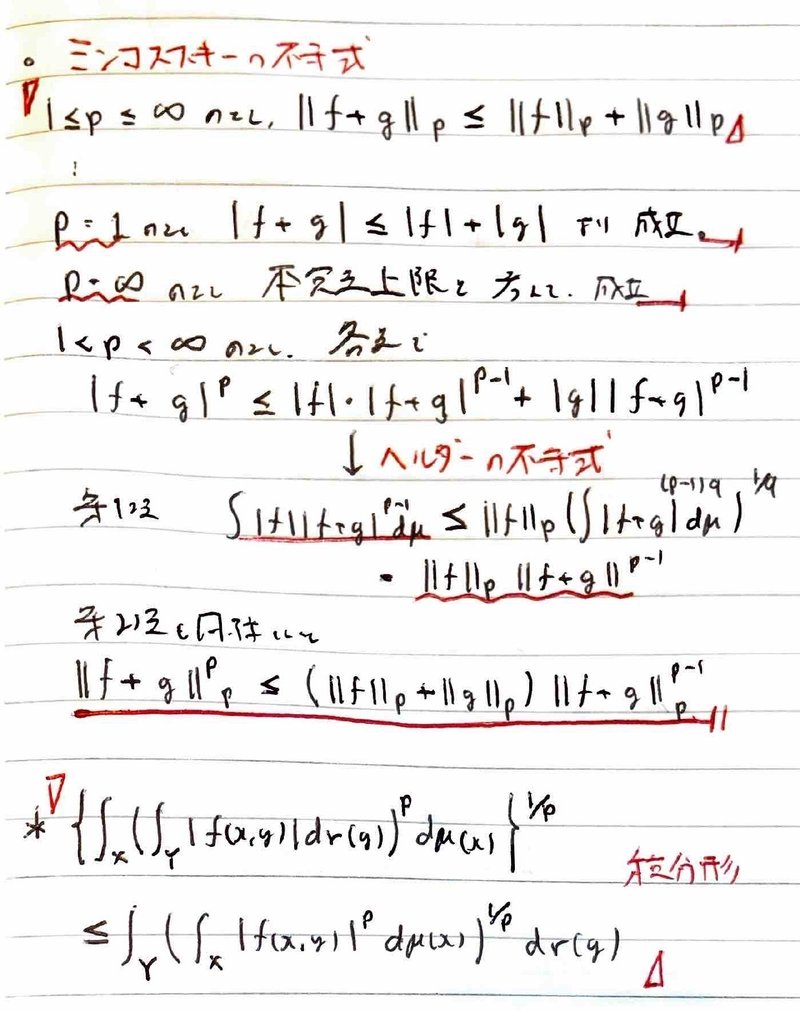 • ミンコフスキーの不等式
▽ 1≤p≤∞ のとし, ||f+g||p ≤ ||f||p + ||g||p △
⋮
p=1 のとし |f+g| ≤ |f|+|g| より 成立。
p=∞ のとし 本質的上限を 考えて. 成立
1<p<∞ のとし. 各点で
|f+g|^p ≤ |f|・|f+g|^{p-1} + |g||f+g|^{p-1}
↓ ヘルダーの不等式
第1項 ∫|f||f+g|^{p-1}dμ ≤ ||f||p (∫|f+g|^{(p-1)q}dμ)^{1/q}
= ||f||p ||f+g||^{p-1}
第2項も同様にして
||f+g||p^p ≤ (||f||p+||g||p) ||f+g||p^{p-1}
* ▽ {∫_X(∫_Y|f(x,y)|dν(y))^p dμ(x)}^{1/p}
積分形
≤ ∫_Y(∫_X|f(x,y)|^p dμ(x))^{1/p} dν(y) △